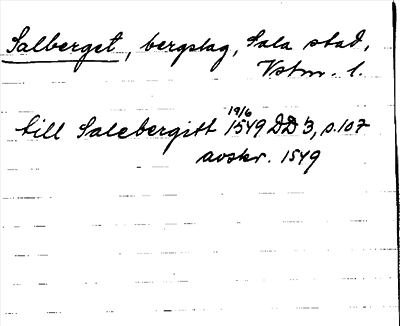 Salberget, bergslag, Sala stad,
Vstm. l.
till Salebergitt 19/6 1549 DD 3, s. 107
avskr. 1549